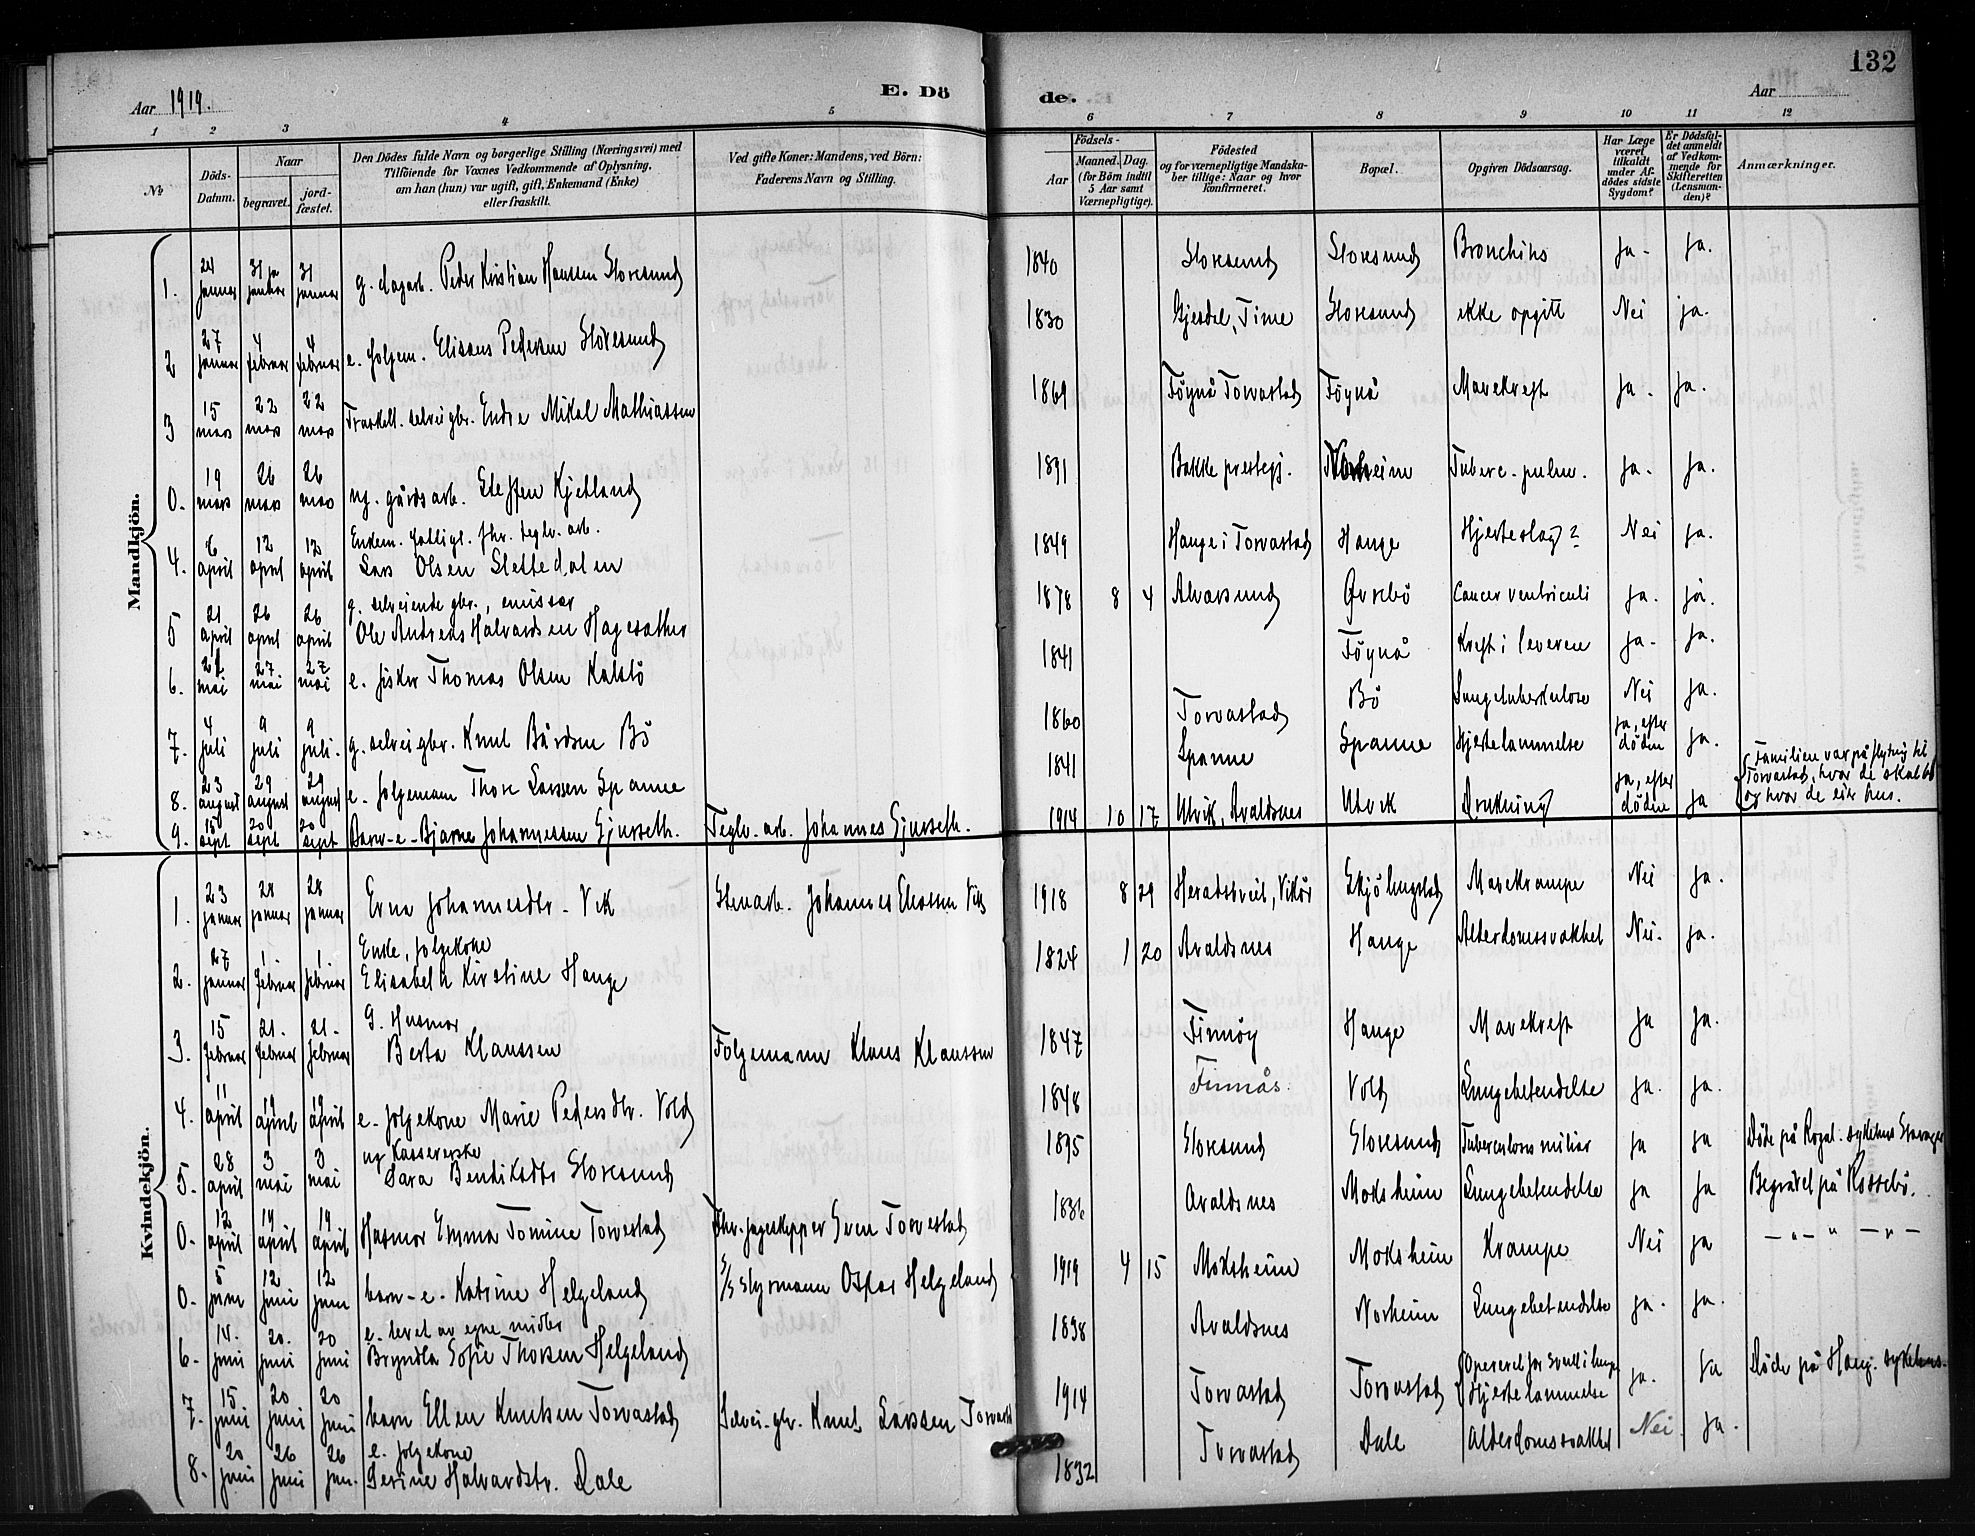 132
Aar 1919.
E. Dö
de.
Aar
1 2 3 4 5 6 7 8 9 10 11 12
No
Döds-Datum.
Naar
begravet.
jord-fæstet.
Den Dödes fulde Navn og borgerlige Stilling (Næringsvei) med
Tilföiende for Voxnes Vedkommende af Oplysning,
om han (hun) var ugift, gift, Enkemand (Enke)
eller fraskilt.
Ved gifte Koner: Mandens, ved Börn:
Faderens Navn og Stilling.
Födsels-
Aar
Maaned. Dag.
(for Börn indtil
5 Aar samt
Værnepligtige).
Födested
og for værnepligtige Mandska-
ber tillige: Naar og hvor
konfirmeret.
Bopæl.
Opgiven Dödsaarsag.
Har Læge
været
tilkaldt
under Af-
dödes sidste
Sygdom?
Er Dödsfal-
det anmeldt
af Vedkom-
mende for
Skifteretten
(Lensman-
den)?
Anmærkninger.
Mandkjön.
1. 24 januar 31 januar 31 januar g. dagarb. Peder Kristian Hanssen Storesund 1840 Storesund Storesund Bronchitis ja - ja.
2 27 januar 4 februar 4 februar e. folgem. Elisæus Pedersen Storesund 1830 Gjesdal, Time Storesund ikke opgitt Nei ja.
3 15 mars 22 mars 22 mars selveigbr. Endre Mikal Mathiassen 1869 Föynå Torvastad Föynå Mavekreft ja. ja.
0. 19 mars 26 mars 26 mars ug. gårdsarb. Steffen Kjetland 1891 Bakke prestegj. Norheim Tuberc. pulm. ja. ja.
4. 6 april 12 april 12 april Enkem. fattigl. fhv. teglv. arb.
Lars Olsen Slettedalen 1849 Hauge i Torvastad Hauge Hjerteslag? Nei ja.
5 21 april 26 april 26 april g. selveiende gbr., emissær
Ole Andreas Halvardsen Hagesæther 1878 8 4 Alvarsund Gresbö Cancer ventriculi ja. ja.
6. mai 27 mai 27 mai e. fisker Thomas Olsen Kalstö 1841 Föynå Kreft i leveren ja. ja.
7. 4 juli 9 juli 9 juli. g. selveigbr. Knut Bårdsen Bö 1860 Torvastad Bö Lungetuberkulose Nei ja.
8. 23 august 29 august 29 august e. folgemann Thore Larssen Spanne 1841 Spanne Spanne Hjertelammelse ja, efter döden ja.
9. 15 sept 20 sept 20 sept Barn-e-Bjarne Johannessen Gjerseth. Teglv. arb. Johannes Gjerseth. 1914 10 17 Utvik, Avaldsnes Utvik Drukning ja, efter döden ja Familien var på flytning til
Torvastad, hvor de skal bo
og hvor de eier hus.
Kvindekjön.
1. 23 januar 28 januar 28 januar Erna Johannesdtr. Vik Stenarb. Johannes Vik 1918 8 29 Heradstveit, Vikör Skjölingstad Mavekrampe Nei ja.
2. 27 januar 1 februar 1 februar Enke, folgekone
Elisabeth Kirstine Hauge 1824 1 20 Avaldsnes Hauge Alderdomssvakhet Nei. ja.
3. 15 februar 21. februar 21. februar G. Husmor
Berta Klaussen Folgemann Klaus Klaussen 1847 Finnöy Hauge Mavekreft ja ja.
4. 11 april 19 april 19 april e. folgekone Marie Pedersdtr. Vold 1848 Finnås. Vold Lungebetendelse ja. ja.
5. 28 april 3 mai 3 mai ug Kassererske
Sara Bendiksdtr Storesund 1895 Storesund Storesund Tuberculosis miliar ja ja Döde på Rogal. sykehus Stavanger
0. 12 april 19 april 19 april Husmor Emma Tomine Torvestad Fhv. jageskipper Sven Torvestad 1886 Avaldsnes Moksheim Lungebetendelse ja ja Begravet på Rossebö.
0. 5 juni 12 juni 12 juni barn-e. Katrine Helgeland S/S styrmann Oskar Helgeland 1919 4 15 Moksheim Moksheim Krampe Nei ja - " - " - " -
6. 14. juni 20. juni 20 juni e. levet av egne midler
Bryndla Sofie Thorsen Helgeland 1838 Avaldsnes Norheim Lungebetendelse ja. ja.
7. 15 juni 20 juni 20 juni barn Ellen Knutsen Torvastad Selvei-gbr. Knut Larssen Torvastad 1914 Torvastad Torvastad Operert for svulst i lunge
Hjertelammelse ja. ja Döde på Haug. sykehus.
8. 20 juni 26 juni 26 jun. e. folgekone
Serine Halvardstr. Dale 1832 Torvastad Dale Alderdomssvakhet Nei ja.